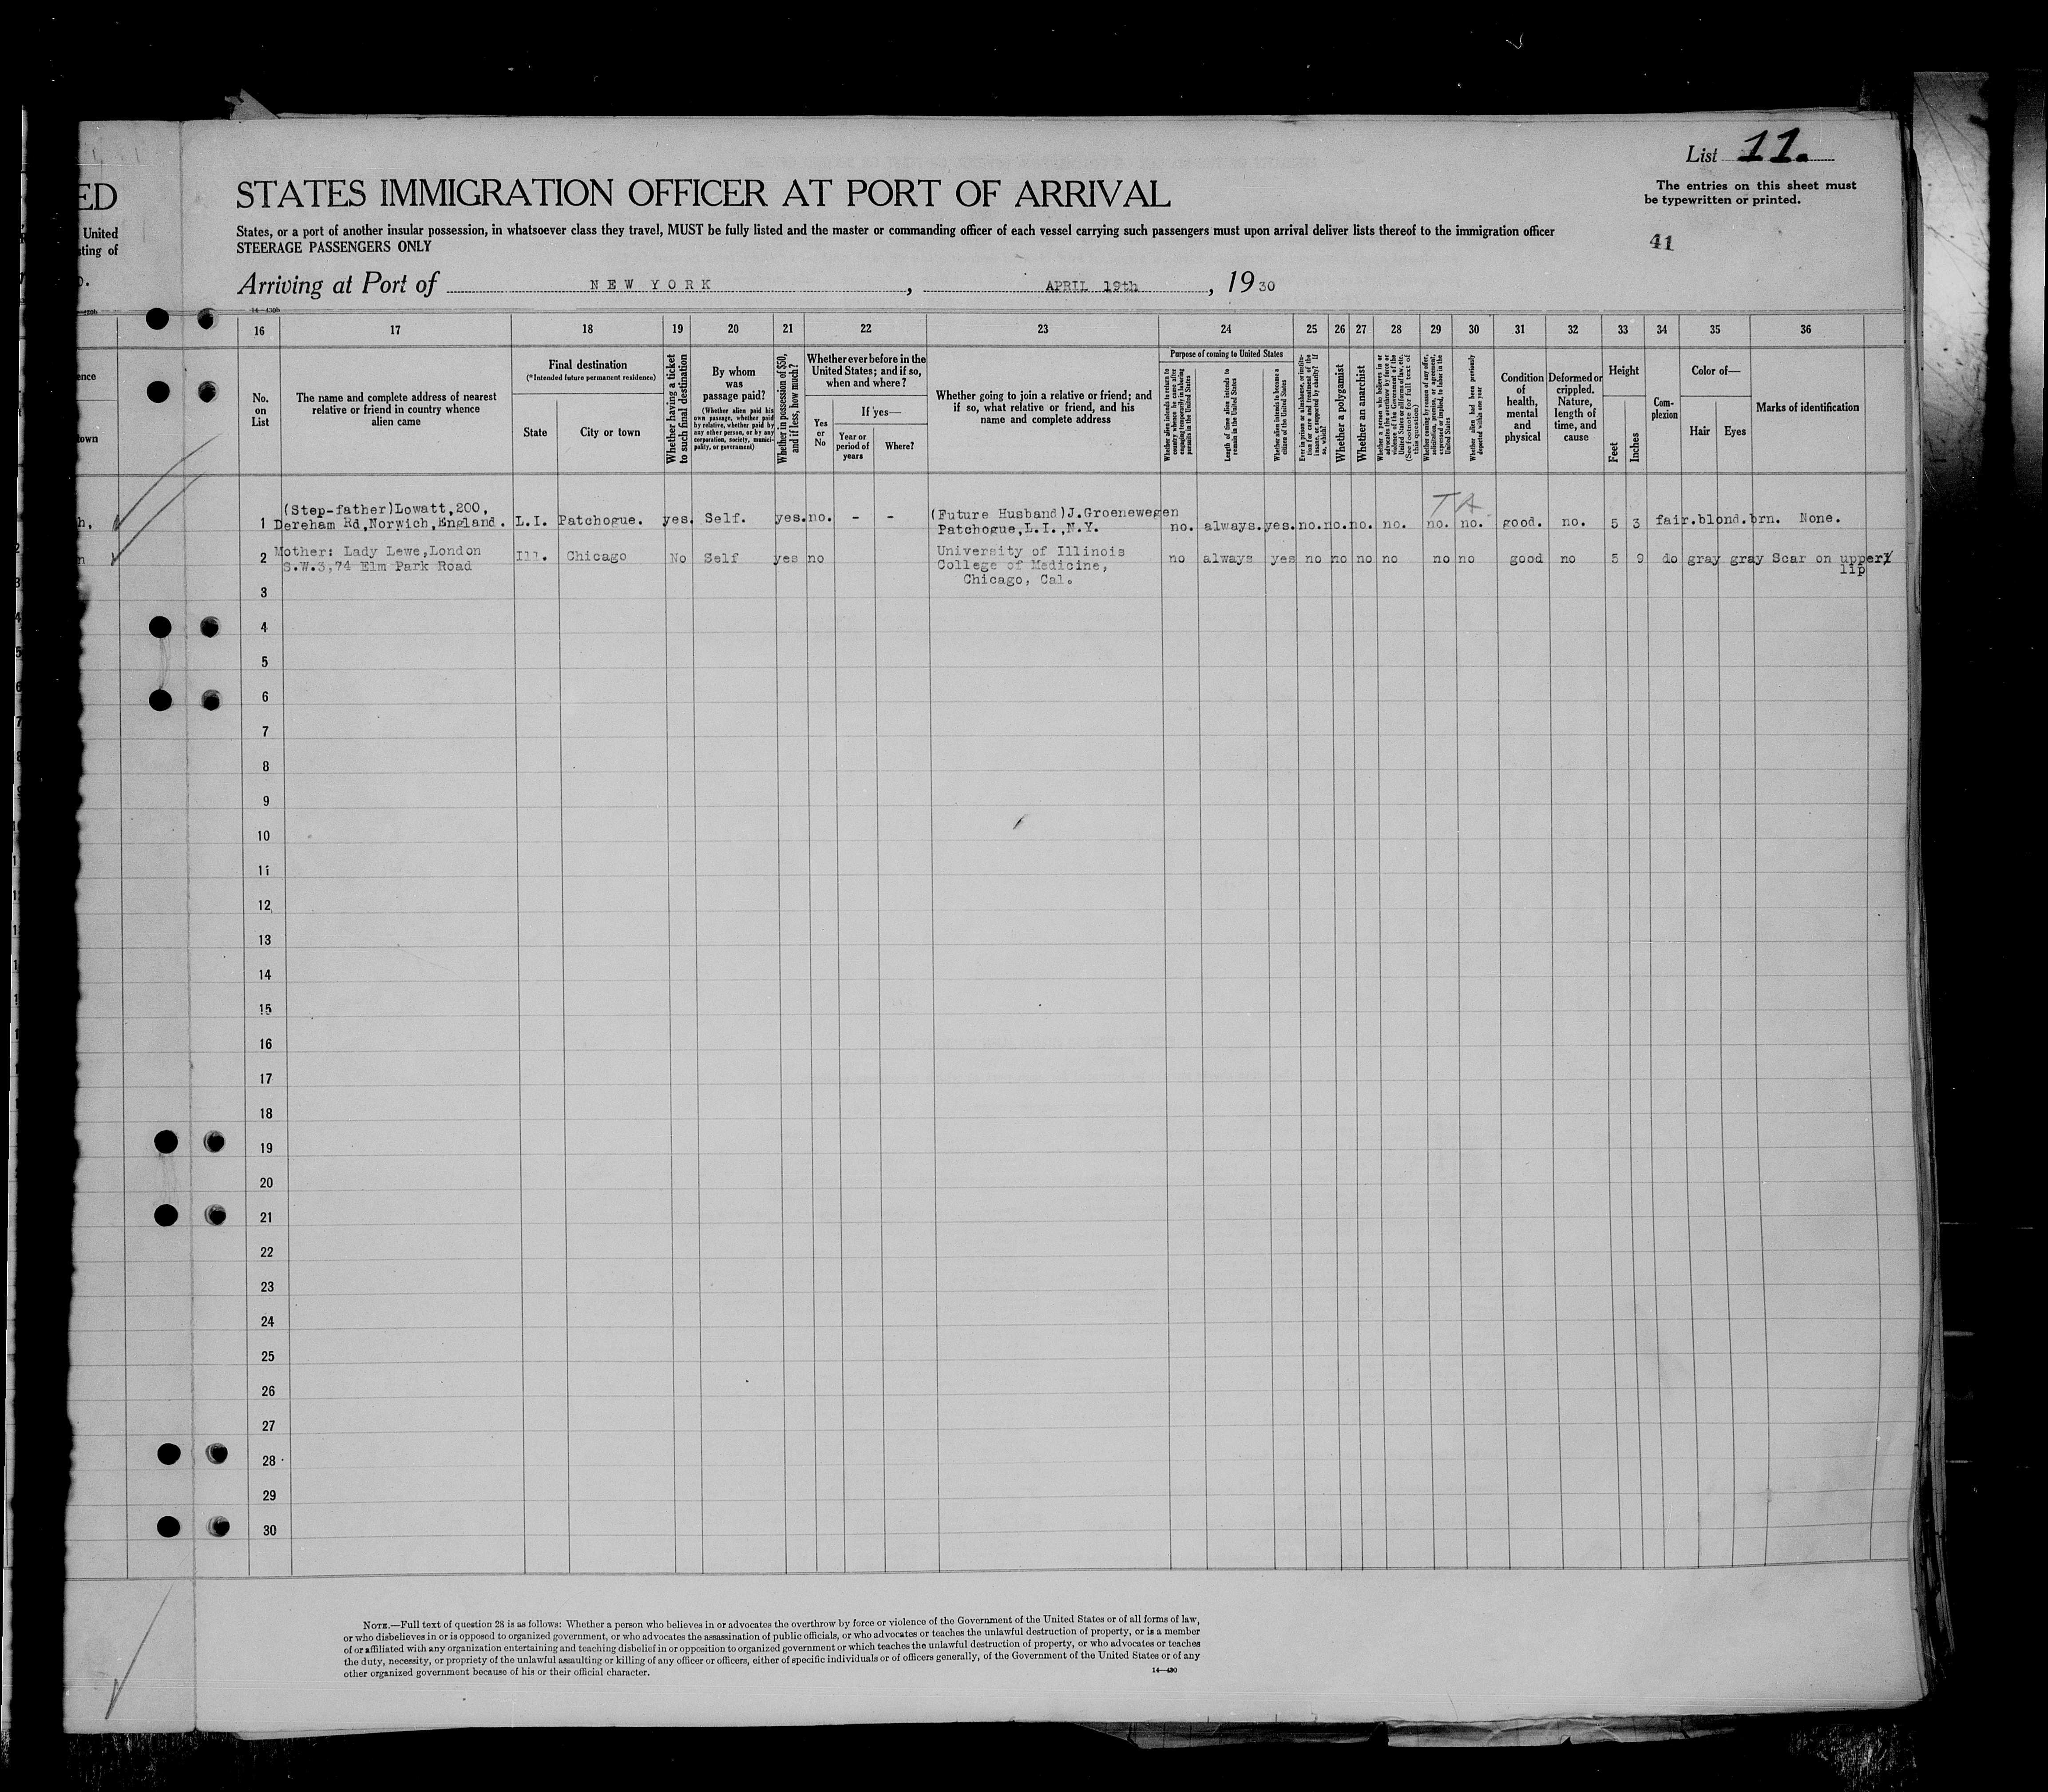 List 11.
ED
STATES IMMIGRATION OFFICER AT PORT OF ARRIVAL
The entries on this sheet must
be typewritten or printed.
United
States, or a port of another insular possession, in whatsoever class they travel, MUST be fully listed and the master or commanding officer of each vessel carrying such passengers must upon arrival deliver lists thereof to the immigration officer
sting of
STEERAGE PASSENGERS ONLY
41
Arriving at Port of NEW YORK, APRIL 19th, 1930
16 17 18 19 20 21 22 23 24 25 26 27 28 29 30 31 32 33 34 35 36
No.
on
List
The name and complete address of nearest
relative or friend in country whence
alien came
Final destination
(*Intended future permanent residence)
State
City or town
Whether having a ticket
to such final destination
By whom
was
passage paid?
(Whether alien paid his
own passage, whether paid
by relative, whether paid by
any other person, or by any
corporation, society, munici-
pality, or government)
Whether in possession of $50,
and if less, how much?
Whether ever before in the
United States; and if so,
when and where?
Yes
or
No
If yes—
Year or
period of
years
Where?
Whether going to join a relative or friend; and
if so, what relative or friend, and his
name and complete address
Purpose of coming to United States
Whether alien intends to return to
country whence he came after
engaging temporarily in laboring
pursuits in the United States
Length of time alien intends to
remain in the United States
Whether alien intends to become a
citizen of the United States
Ever in prison or almshouse, or institu-
tion for care and treatment of the
insane, or supported by charity? If
so, which?
Whether a polygamist
Whether an anarchist
Whether a person who believes in or
advocates the overthrow by force or
violence of the Government of the
United States or all forms of law, etc.
(See footnote for full text of
this question)
Whether coming by reason of any offer,
solicitation, promise, or agreement,
expressed or implied, to labor in the
United States
Whether alien had been previously
deported within one year
Condition
of
health,
mental
and
physical
Deformed or
crippled.
Nature,
length of
time, and
cause
Height
Feet
Inches
Com-
plexion
Color of—
Hair
Eyes
Marks of identification
town
TA
(Step-father)Lowatt,200, (Future Husband)J.Groenewegen
1 Dereham Rd,Norwich,England. L.I. Patchogue. yes. Self. yes. no. - - Patchogue,L.I.,N.Y. no. always. yes. no. no. no. no. no. no. good. no. 5 3 fair. blond. brn. None.
Mother: Lady Lewe,London University of Illinois
2 S.W.3,74 Elm Park Road Ill. Chicago No Self yes no College of Medicine, no always yes no no no no no no good no 5 9 do gray gray Scar on upper
Chicago, Cal. lip
3
4
5
6
7
8
9
10
11
12
13
14
15
16
17
18
19
20
21
22
23
24
25
26
27
28
29
30
NOTE.—Full text of question 28 is as follows: Whether a person who believes in or advocates the overthrow by force or violence of the Government of the United States or of all forms of law,
or who disbelieves in or is opposed to organized government, or who advocates the assassination of public officials, or who advocates or teaches the unlawful destruction of property, or is a member
of or affiliated with any organization entertaining and teaching disbelief in or opposition to organized government or which teaches the unlawful destruction of property, or who advocates or teaches
the duty, necessity, or propriety of the unlawful assaulting or killing of any officer or officers, either of specific individuals or of officers generally, of the Government of the United States or of any
other organized government because of his or their official character.
14—430